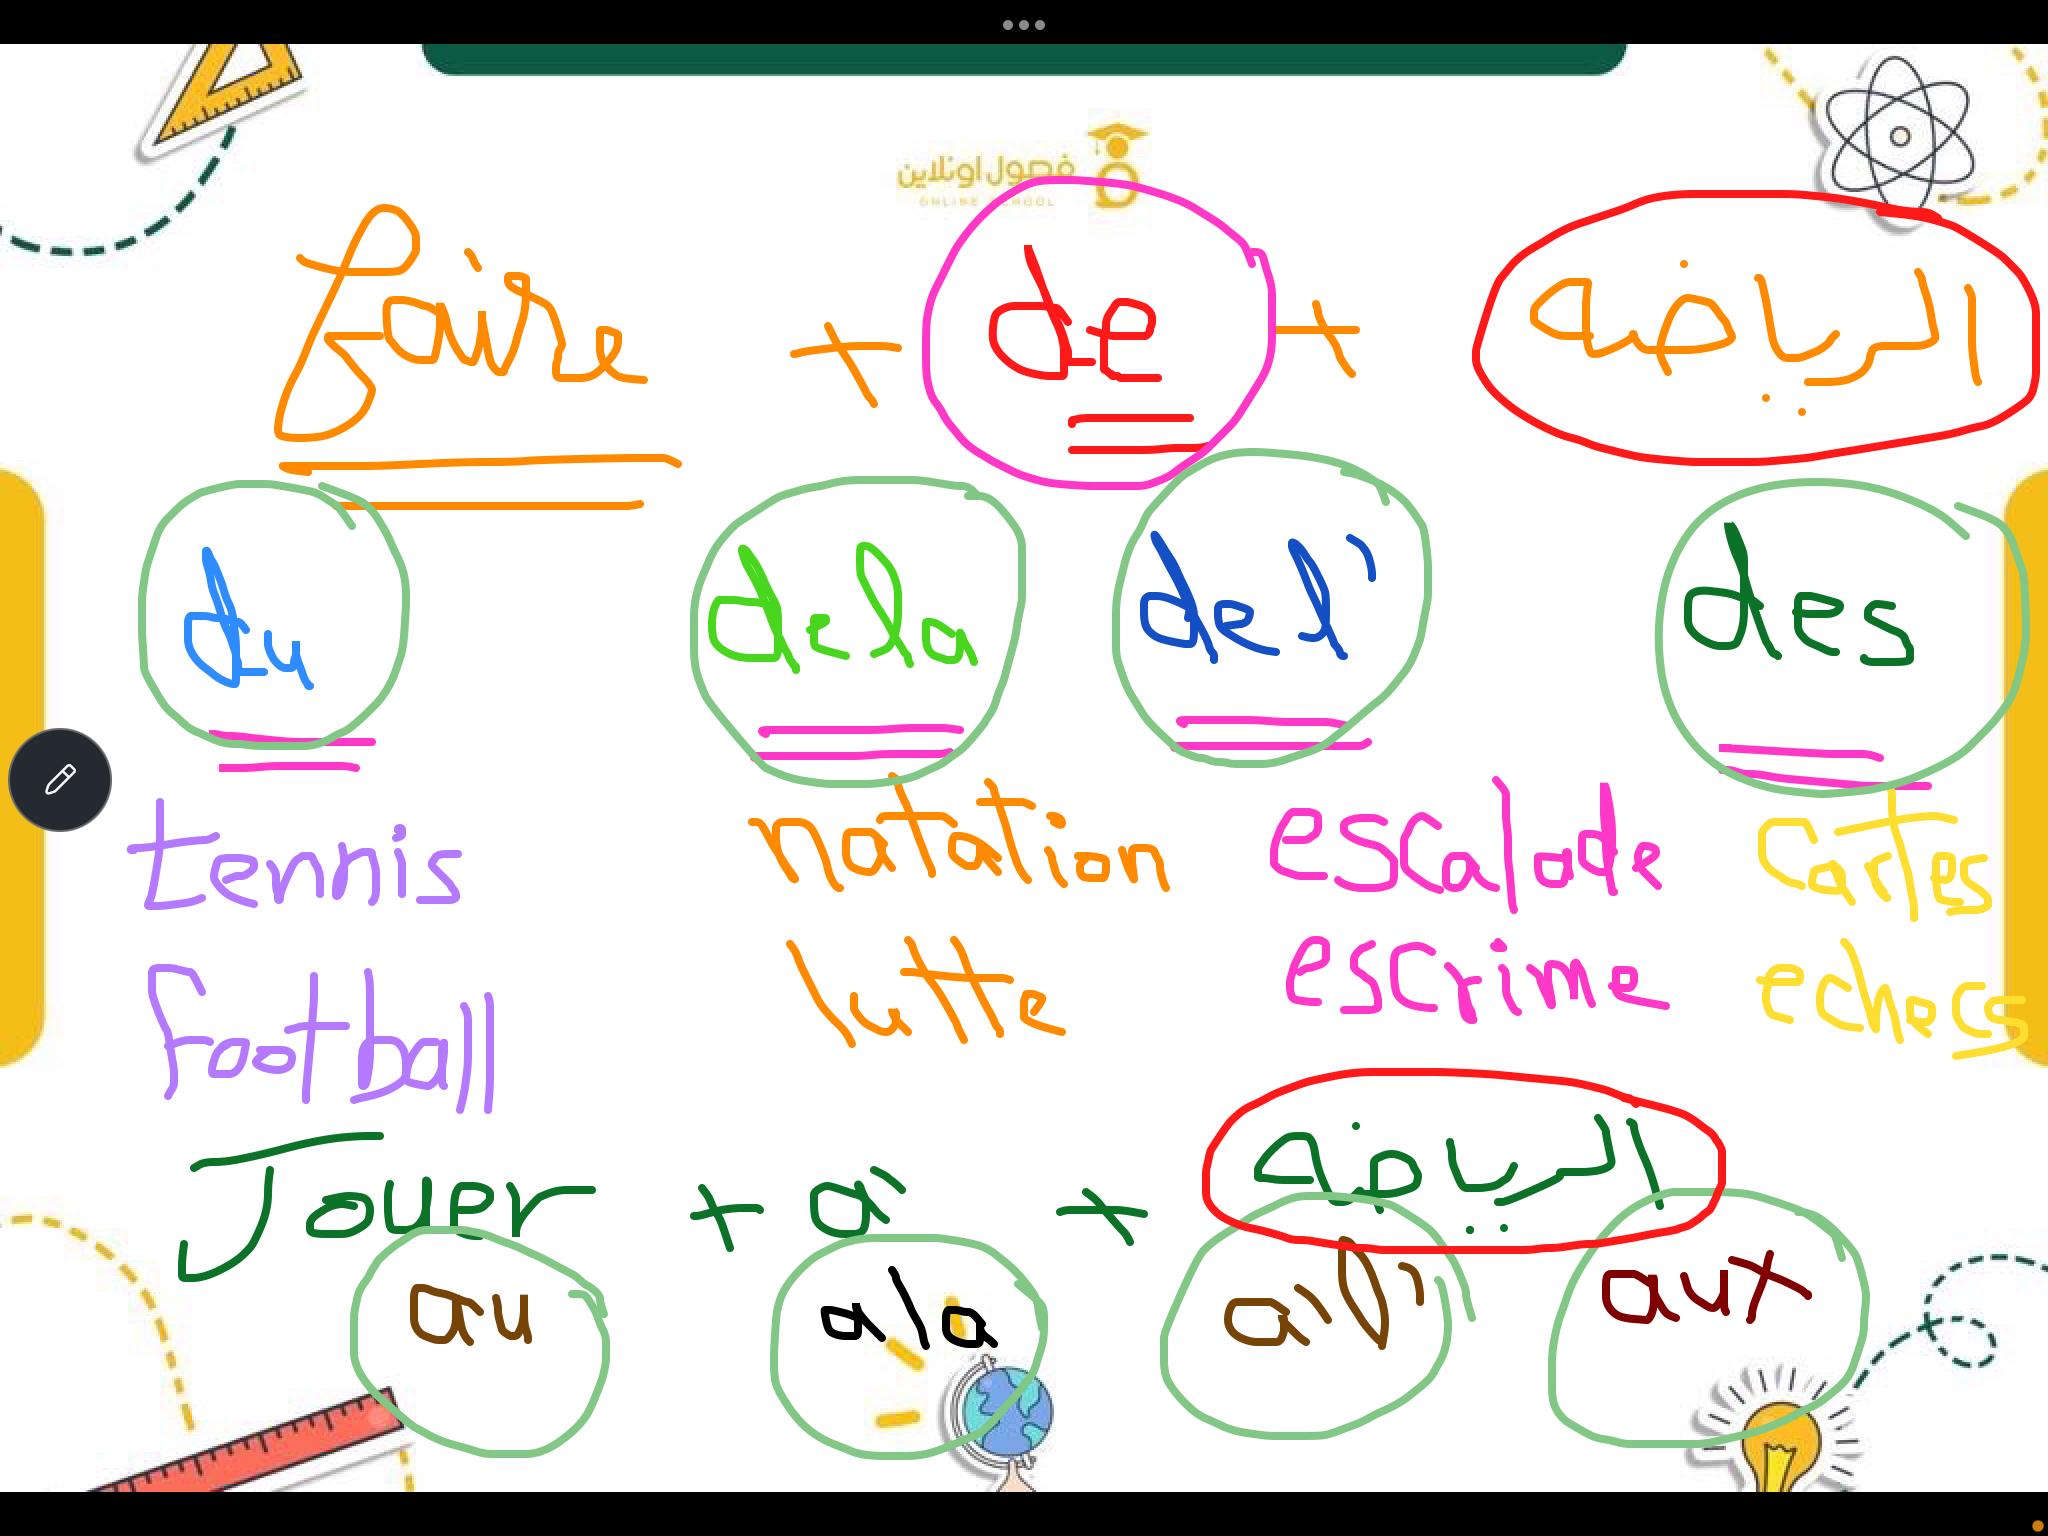 فصول اونلاين
ONLINE SCHOOL
faire + de + الرياضه
du dela del' des
tennis natation escalade cartes
football lutte escrime echecs
Jouer + à + الرياضه
au àla àl' aux